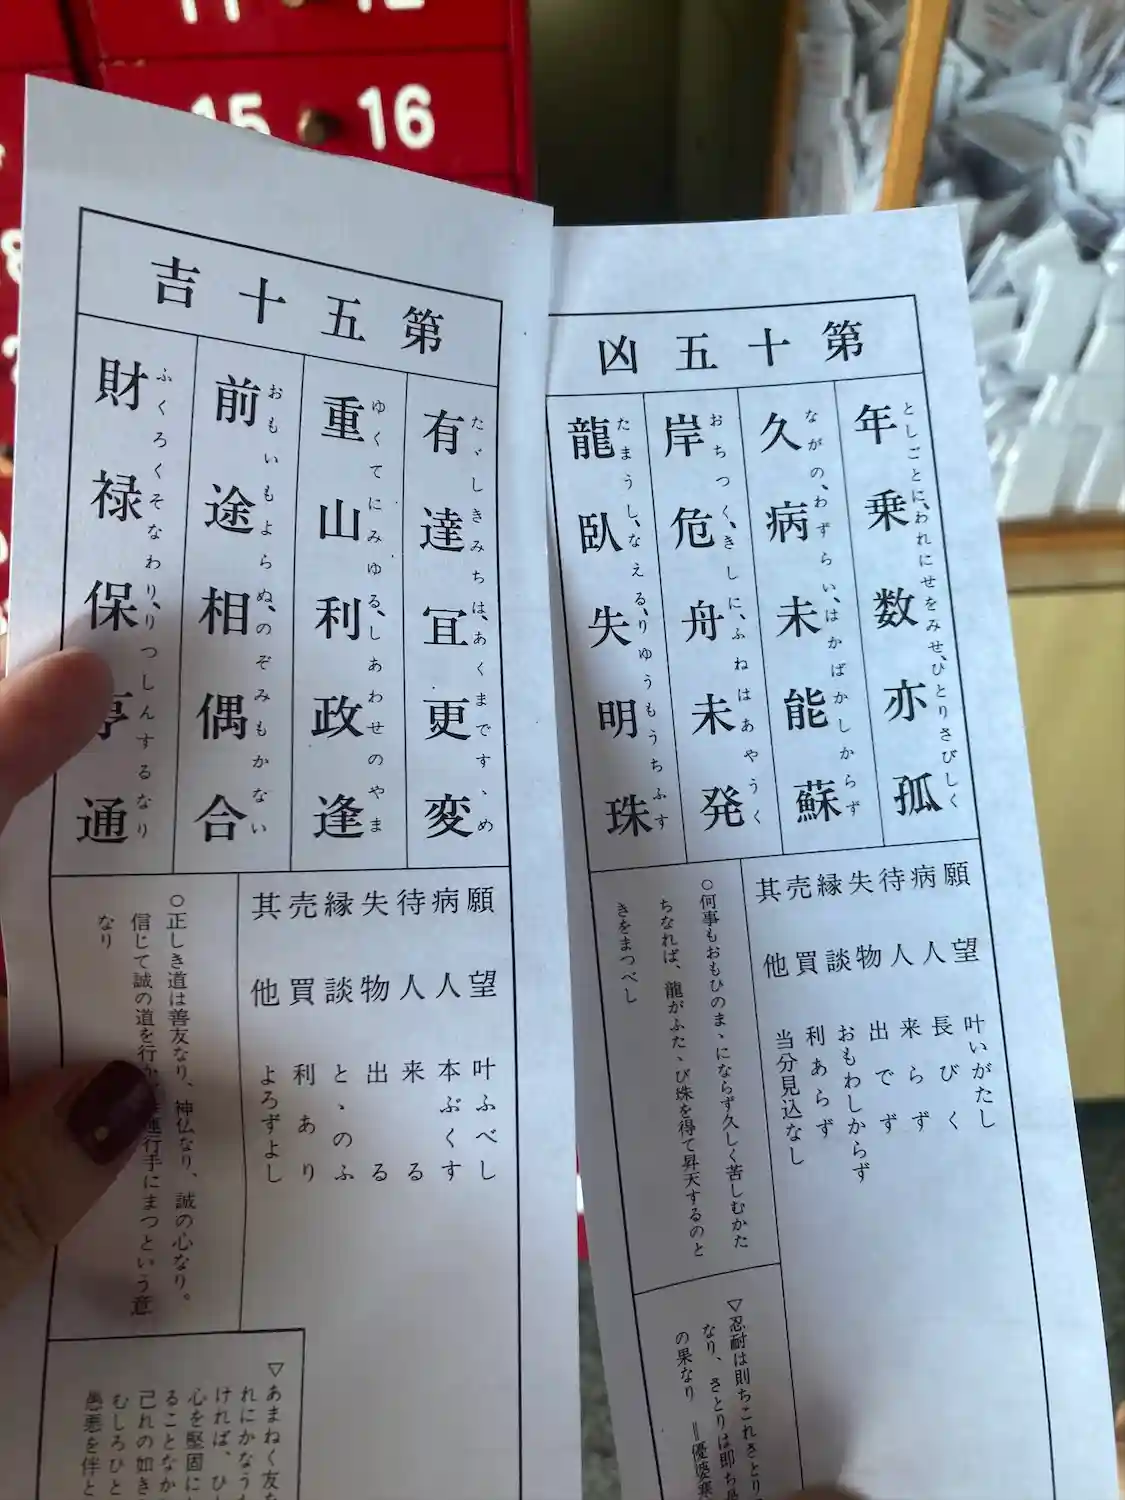 12
15
16
第五十吉
有達冝更変
たゞしきみちは、あくまです、め
重山利政逢
ゆくてにみゆる、しあわせのやま
前途相偶合
おもいもよらぬ、のぞみもかない
財禄保亨通
ふくろくそなわり、りつしんするなり
願望 叶ふべし
病人 本ぶくす
待人 来る
失物 出る
縁談 とゝのふ
売買 利あり
其他 よろずよし
○正しき道は善友なり、神仏なり、誠の心なり。
信じて誠の道を行
運行手にまつという意
なり
▽あまねく友
れにかなう
ければ、ひ
心を堅固に
ることなか
己れの如き
むしろひと
愚悪を伴と
第十五凶
年乗数亦孤
としごとに、われにせをみせ、ひとりさびしく
久病未能蘇
ながの、わずらい、はかばかしからず
岸危舟未発
おちつく、きしに、ふねはあやうく
龍臥失明珠
たまうしなえる、りゅうもうちふす
願望 叶いがたし
病人 長びく
待人 来らず
失物 出でず
縁談 おもわしからず
売買 利あらず
其他 当分見込なし
○何事もおもひのまゝにならず久しく苦しむかた
ちなれば、龍がふたゝび珠を得て昇天するのと
きをまつべし
▽忍耐は則ちこれさとり
なり、さとりは即ち是
の果なり ＝優婆塞